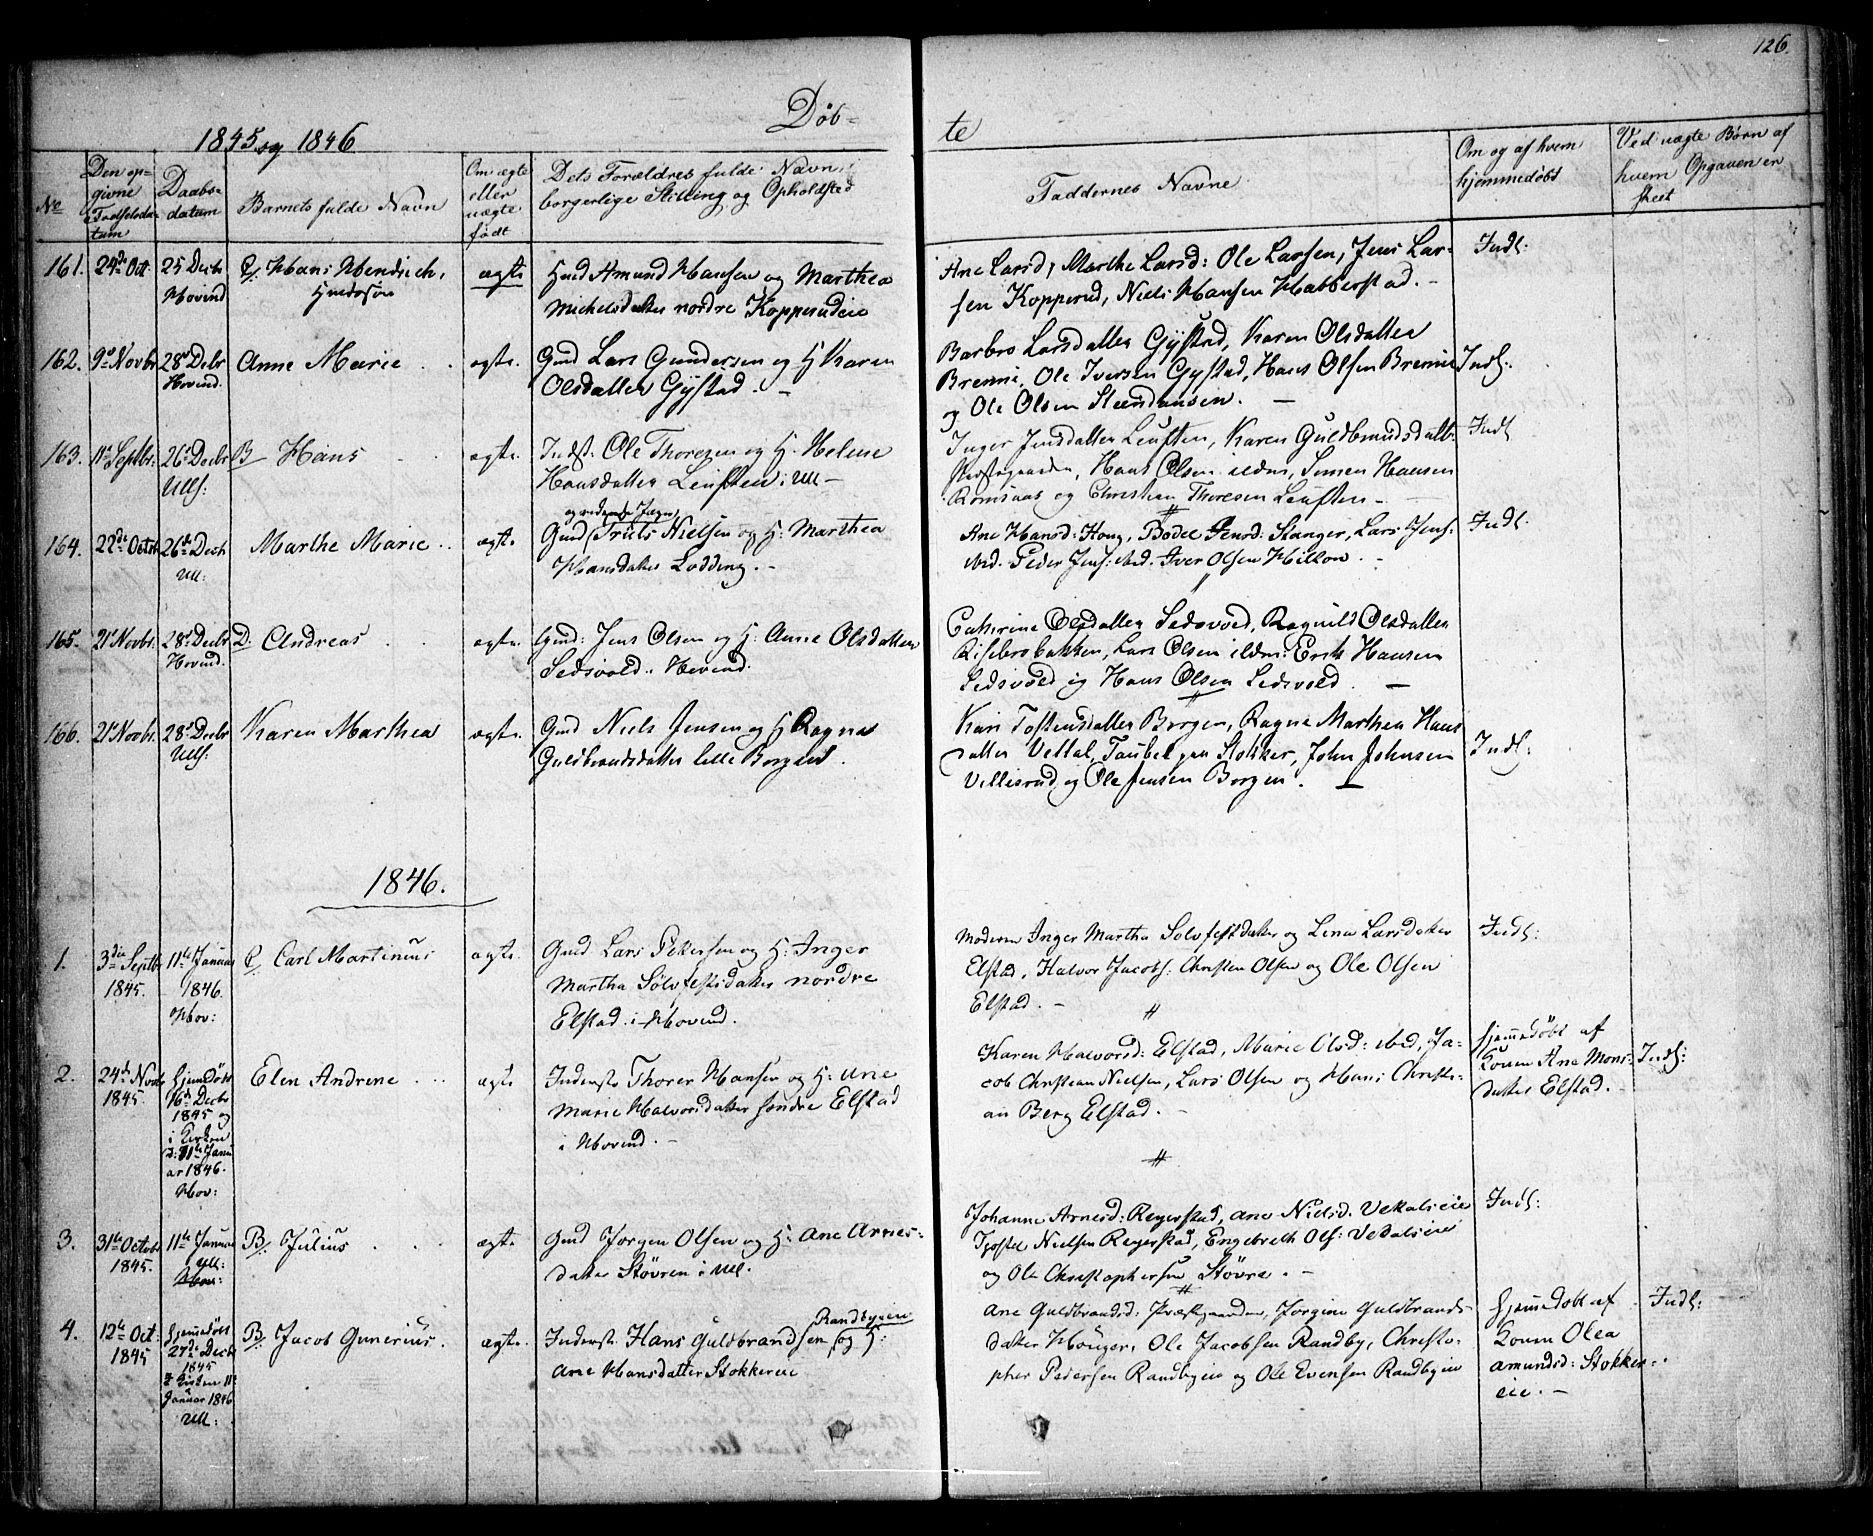 126.
Døb-
te
1845 og 1846
No
Den op-
givne
Fødselsda-
tum
Daabs-
datum
Barnets fulde Navn
Om ægte
eller
uægte
født
Dets Forældres fulde Navn,
borgerlige Stilling og Opholdsted
Faddernes Navne
Om og af hvem
hjemmedøbt
Ved uægte Børn af
hvem Opgaven er
skeet
161. 24d Oct: 25 Decb Hovind Hans Hendrich, ægte
Gmd Amund Hansen og Marthea
Michelsdatter nordre Kopperudeie
Ane Larsd, Marthe Larsd: Ole Larsen, Jens Lar-
sen Kopperud, Niels Hansen Habberstad. -
Indl:
162. 9d Novbr 28d Decbr Hovind. Anne Marie . . ægte.
Gmd Lars Gundersen og H Karen
Olsdatter Gystad. -
Barbro Larsdatter Gystad, Karen Olsdatter
Brenni, Ole Iversen Gystad, Hans Olsen Brenni
og Ole Olsen -
Indl:
163. Septbr. 26d Decbr Ulls: B Hans ægte.
Indst. Ole Thoresen og H. Helene
Hansdatter Leufsten i Ull -
Inger Jensdatter Leufsten, Karen Guldbrandsdatt:
Hans Olsen Simen Hansen
Romsaas og Christian Thoresen Leufsten -
Indl
164. 22de Octob 26d Decb Ull: Marthe Marie . . ægte.
Gmd Truls Nielsen og H: Marthea
Hansdatter Lodding. -
Ane Hansd: Houg, Bodel Jensd: Stanger, Lars Jens:
ibid. Peder Jens: ibid. Iver Olsen Hilton -
Indl.
165. 21d Novbr. 28d Decbr Hovind. D. Andreas . . ægte.
Gmd: Jens Olsen og H: Anne Olsdatter
Ledsvold. Hovind.
Cathrine Olsdatter Ledsvold, Ragnild Olsdatter
Risebrobakken, Lars Olsen Erik Hansen
Ledsvold og Hans Olsen Ledsvold. -
166. 21d Novbr. 28d Decbr Ulls: Karen Marthea ægte.
Gmd Niels Jensen og H Ragne
Guldbrandsdatter lille Borgen.
Kari Tostensdatter Borgen, Ragne Marthea Hans
datter Vettal, Taubel paa Stokker, John Johnsen
Villerud og Ole Jensen Borgen.
Indl:
1846.
1. 3die Septbr 1845. 11te Januar 1846. Hov: Carl Martinius ægte.
Gmd Lars Pedersen og H: Inger
Martha Sølvfestsdatter nordre
Elstad i Hovind.
Moderen Inger Martha Sølvfestdatter og Lena Larsdatter
Elstad, Halvor Jacobs: Christen Olsen og Ole Olsen
Elstad. -
Indl:
2. 24d Novbr 1845. hjemdøbt 16d Decbr 1845 og i Kirken d: 11te Janu ar 1846. Hov: Elen Andrene . . . ægte
Inderste Thorer Hansen og H: Ane
Marie Halvorsdatter søndre Elstad
i Hovind. -
Karen Halvorsd: Elstad, Marie Olsd: ibid, Ja-
cob Christian Nielsen, Lars Olsen og Hans Christi-
an Berg Elstad. -
hjemmedøbt af
Konen Ane Mons-
datter Elstad. -
Indl:
3. 31te Octobr 1845. 11te Januar Ull: Hov: B. Julius . . . ægte
Gmd Jørgen Olsen og H: Ane Arnes-
datter Støvren i Ull.
Johanne Arnesd: Reyerstad, Ane Nielsd. Vekalseie
Nielsen Reyerstad, Engebreth Ols: Vedalseie
og Ole Christophersen Støvre. -
Indl:
4. 12te Oct: 1845 hjemmedøbt 27de Decb 1845 i Kirken 11te Januar 1846 Ull: B. Jacob Gunerius. ægte.
Randbyeie
Inderste Hans Guldbrandsen og H:
Ane Hansdatter Stokkereie
Ane Guldbrandsd: Præstgaarden, Jørgine Guldbrands-
datter Houger, Ole Jacobsen Randby, Christo-
pher Pedersen Randbyeie og Ole Evensen Randbyeie
hjemmedøbt af
Konen Olea
Amundsd: Stokker-
eie. -
Indl: